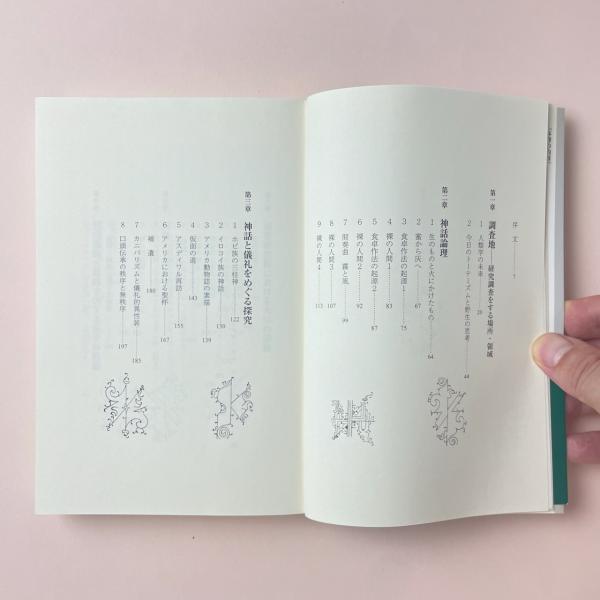 序文――7
第一章 調査地――研究調査をする場所・領域
1 人類学の未来 20
2 今日のトーテミズムと野生の思考 44
第二章 神話論理
1 生のものと火にかけたもの 64
2 蜜から灰へ
3 食卓作法の起源1 67
4 裸の人間1 75
5 食卓作法の起源2 83
6 裸の人間2 87
7 間奏曲 霧と風 92
8 裸の人間3 99
9 裸の人間4 107
113
第三章 神話と儀礼をめぐる探究
1 ホピ族の柱神 122
2 イロコイ族の神話 130
3 アメリカ動物誌の素描 139
4 仮面の道 143
5 アスディワル再訪 155
6 アメリカにおける聖杯 167
補遺 180
7 カニバリズムと儀礼的異性装 185
8 口頭伝承の秩序と無秩序 197